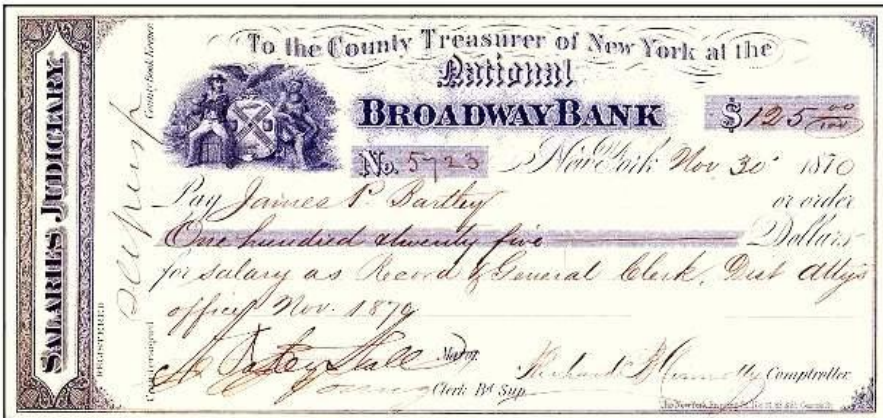 SALARIES JUDICIARY
REGISTERED
Countersigned
To the County Treasurer of New York at the
National
BROADWAY BANK
$125 00/100
No. 5723 New York Nov 30 1870
Pay James P. Bartley or order
One hundred & twenty five Dollars
for salary as Record & General Clerk, Dist Atty's
office Nov. 1870
A Oakey Hall Mayor
Young Clerk Bd Sup
Richard B Connolly Comptroller